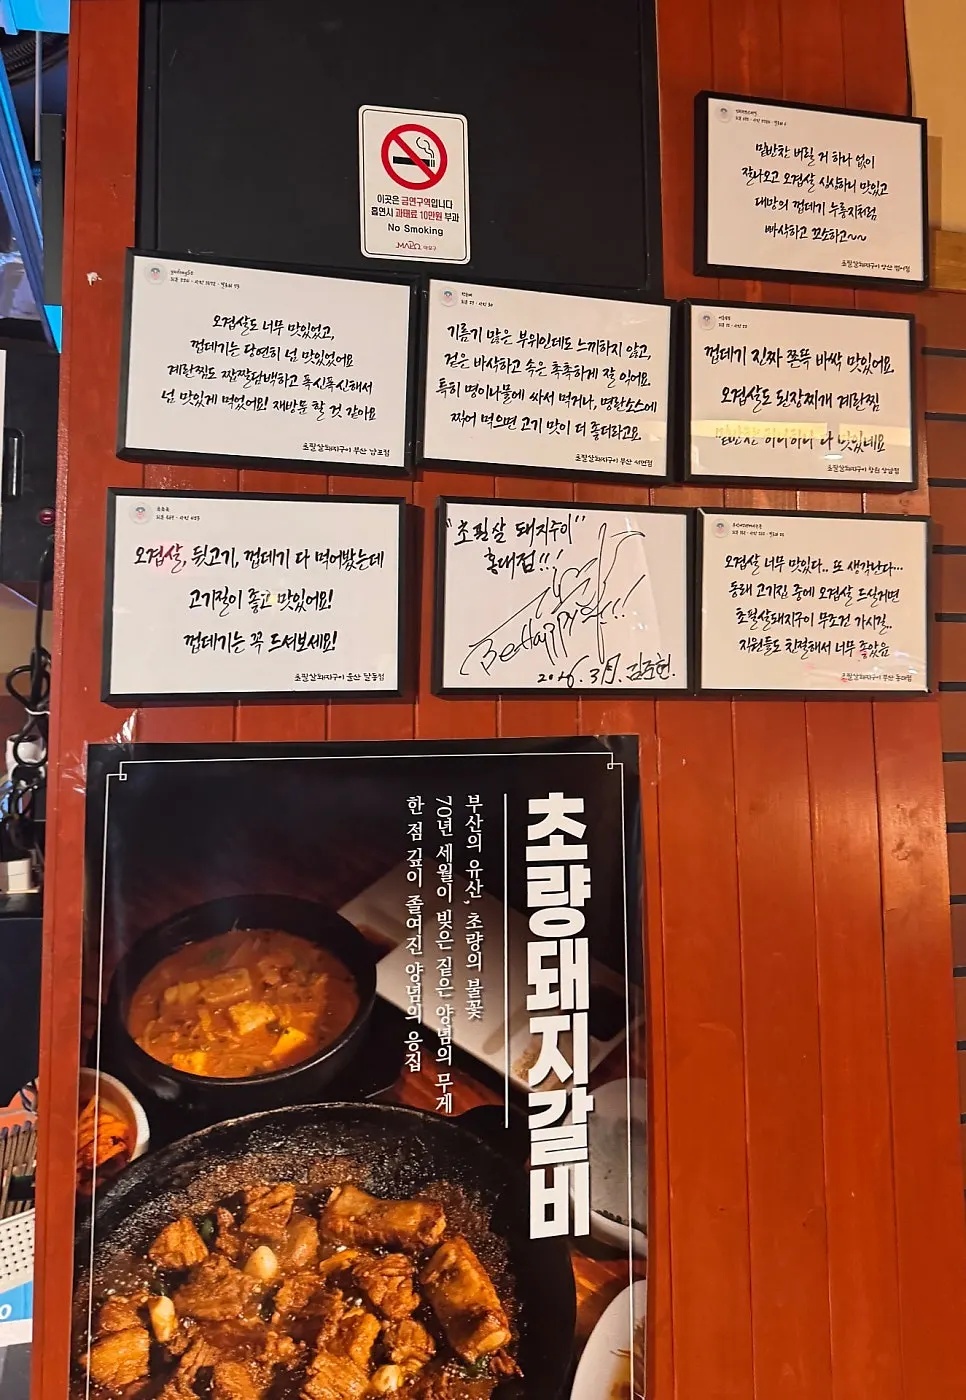 이곳은 금연구역입니다
흡연시 과태료 10만원 부과
No Smoking
MAPO 마포구
밑반찬 버릴 거 하나 없이
잘나오고 오겹살 싱싱하니 맛있고
대망의 껍데기 누룽지처럼
빠삭하고 꼬소하고~~
초필살돼지구이 양산
오겹살도 너무 맛있었고,
껍데기는 당연히 넘 맛있었어요
계란찜도 짭짤담백하고 폭신폭신해서
넘 맛있게 먹었어요! 재방문 할 것 같아요
초필살돼지구이 부산 남포점
기름기 많은 부위인데도 느끼하지 않고,
겉은 바삭하고 속은 촉촉하게 잘 익어요
특히 명이나물에 싸서 먹거나, 명란소스에
찍어 먹으면 고기 맛이 더 좋더라고요
초필살돼지구이 부산 서면점
껍데기 진짜 쫀뜩 바싹 맛있어요
오겹살도 된장찌개 계란찜
밑반찬 하나하나 다 맛있네요
초필살돼지구이 창원 상남점
오겹살, 뒷고기, 껍데기 다 먹어봤는데
고기질이 좋고 맛있어요!
껍데기는 꼭 드셔보세요!
초필살돼지구이 울산 달동점
"초필살 돼지구이"
홍대점!!!
Be Happy!!!
2026. 3月. 김주현.
오겹살 너무 맛있다.. 또 생각난다...
동래 고기집 중에 오겹살 드실거면
초필살돼지구이 무조건 가시길..
직원들도 친절해서 너무 좋았음
초필살돼지구이 부산 동래점
초량돼지갈비
부산의 유산, 초량의 불꽃
70년 세월이 빚은 짙은 양념의 무게
한 점 깊이 졸여진 양념의 응집